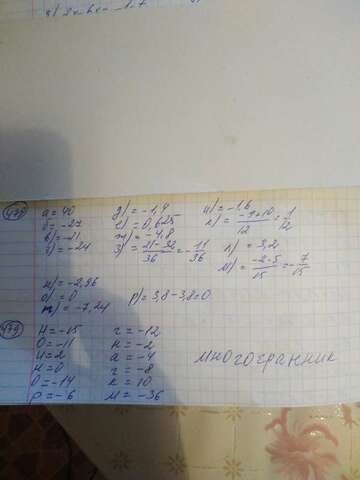 478
а = 40
б = -27
в) = -21
г) = -24
д) = -1,4
е) = 0,625
ж) = -4,8
з) = 21-32/36 = -11/36
и) = -1,6
к) = -9+10/12 = 1/12
л) = 3,2
м) = -2-5/15 = -7/15
н) = -2,96
о) = 0
п) = -7,24
р) = 3,8-3,8=0
479
Н = -15
О = -11
И = 2
Н = 0
О = -14
Р = -6
г = -12
н = -2
а = -4
г = -8
к = 10
М = -36
многогранник